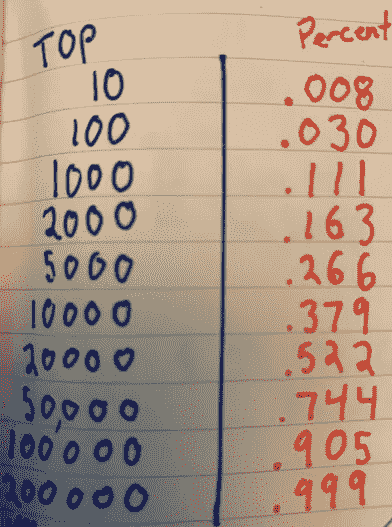 TOP Percent
10 .008
100 .030
1000 .111
2000 .163
5000 .266
10000 .379
20000 .522
50,000 .744
100,000 .905
200000 .999